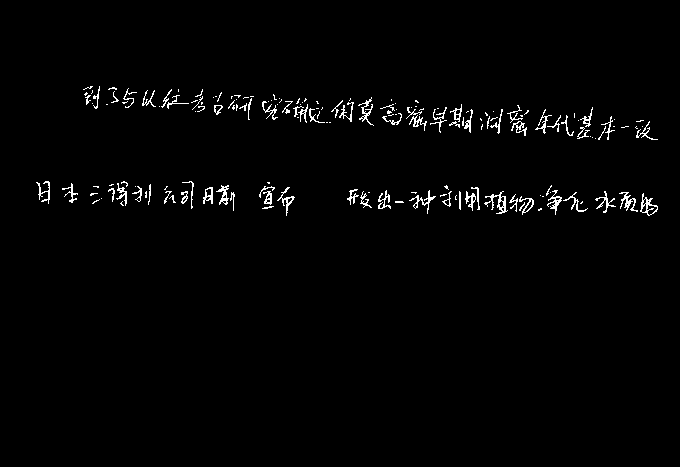 到了与以往考古研究确定的莫高窟早期洞窟年代基本一致
日本三得利公司日前宣布 开发出一种利用植物净化水质的